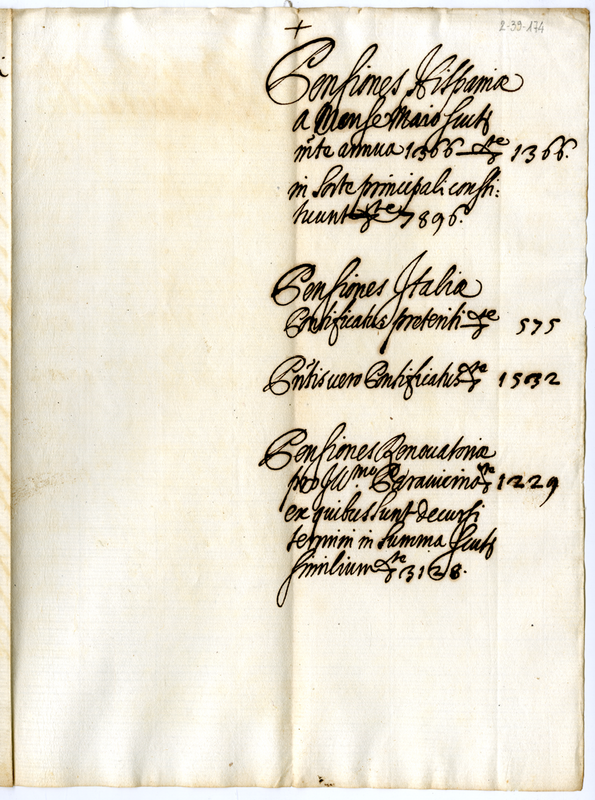 +
2-39-174
Pensiones Hispaniæ
a Mense Maio scut
annua 1366 1366.
in sorte principali consti:
tuunt 7896.
Pensiones Italiæ
Pontificatus preteriti 575
Pñtis vero Pontificatus 1532
Pensiones Renovatoriæ
pro Illmo Paravicino 1229
ex quibus sunt decursi
termini in summa scut
similium 3128.